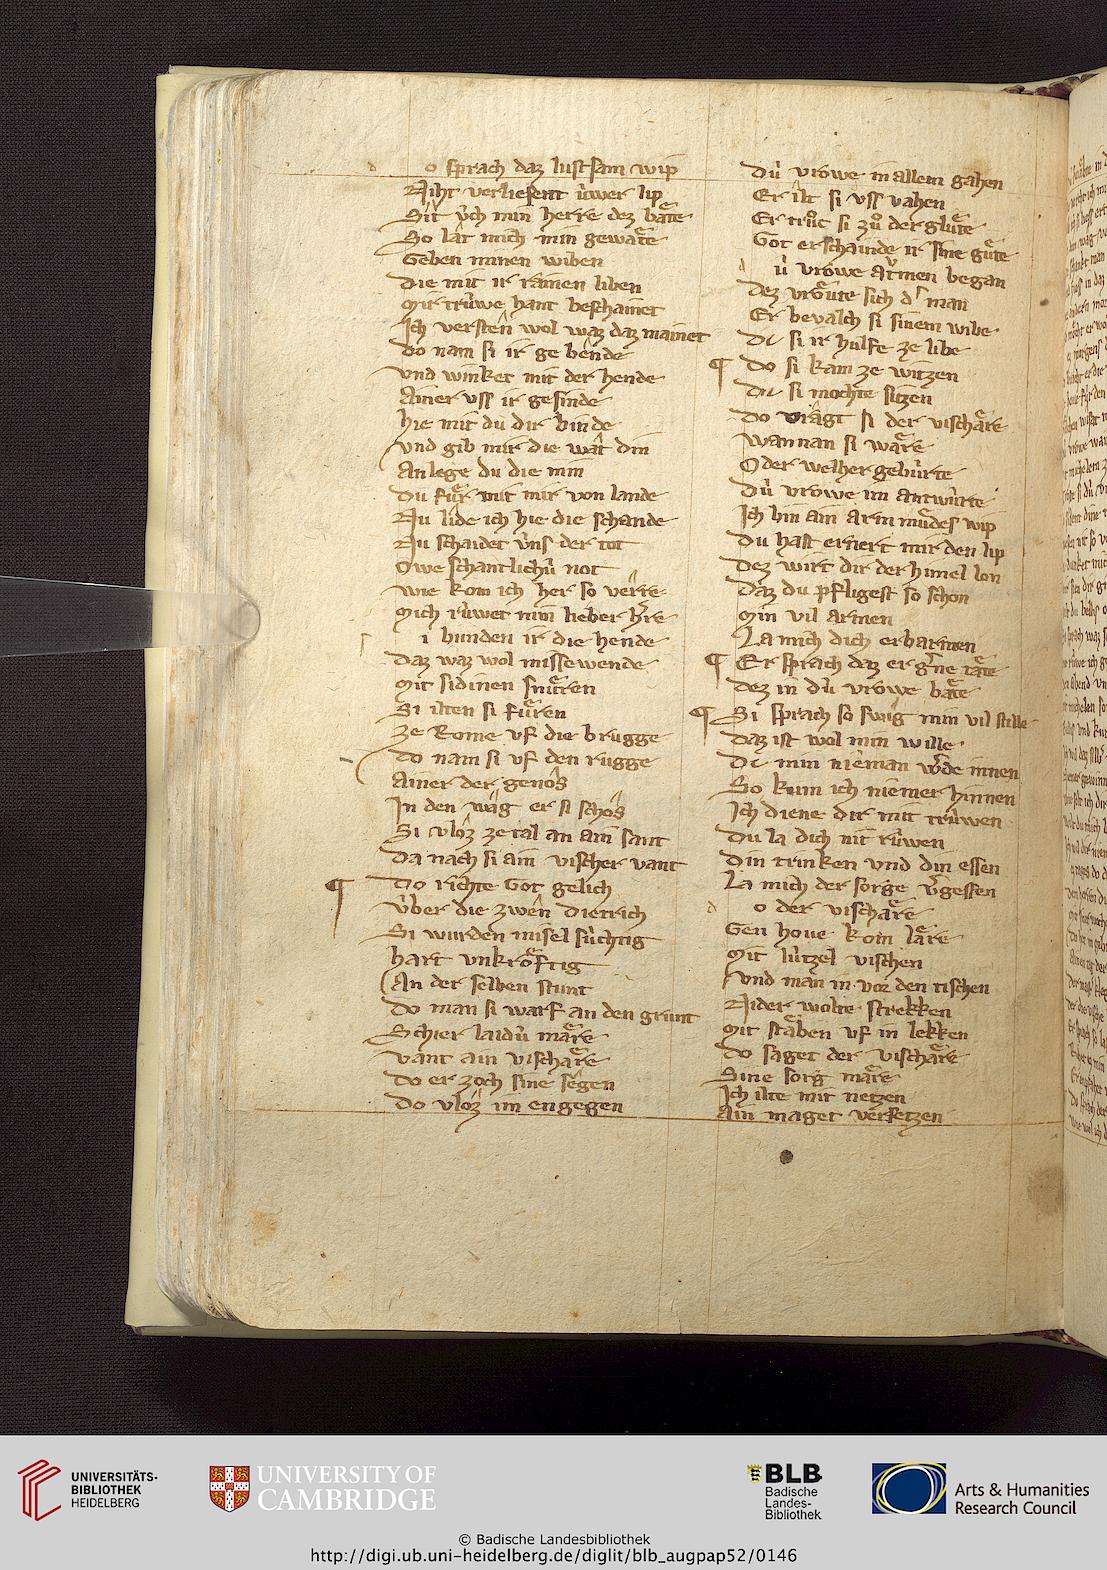 o sprach daz lustsam wip
Niht verliesent úwer lip
Sit úch min herre dez bāte
So lat mich min gewāte
Geben minen wiben
Die mit ir rainen liben
Mir trúwe hant beschainet
Ich versten wol waz daz mainet
Do nam si ir gebende
Vnd winket mit der hende
Ainer vss ir gesinde
Hie mit du dir binde
Vnd gib mir die wât din
An lege du die min
Du fůr mit mir von lande
Nu lide ich hie die schande
Nu schaidet úns der tot
Owe schantlichú not
Wie kom ich her so verre
Mich rúwet min lieber hrre
i bunden ir die hende
Daz waz wol missewende
Mit sidinen snůren
Si ilten si fůren
Ze Rome vf die brugge
Do nam si vf den rugge
Ainer der genos
In den wag er si schos
Si vloz ze tal an ain sant
Da nach si ain vischer vant
¶ Do richte Got gelich
Úber die zwen Dietrich
Si wurden misel súchtig
Hart vnkrŏftig
An der selben stunt
Do man si warf an den grunt
Schier laidú māre
Vant ain vischāre
Do er zoch sine segen
Do vloz im engegen
Dú vrowe in allem gahen
Er ilt si vss vahen
Er trůc si zů der glůte
Got erschainde ir sine gůte
ú vrowe atmen began
Dez vrŏute sich d' man
Er bevalch si sinem wibe
Dc si ir hulfe ze libe
¶ Do si kam ze witzen
Dc si mochte sitzen
Do vragt si der vischāre
Wannan si wāre
Oder welher gebúrte
Dú vrowe im antwúrte
Ich bin ain arm můdes wip
Du hast ernert mir den lip
Dez wirt dir der himel lon
Daz du pfligest so schon
Min vil armen
La mich dich erbarmen
¶ Er sprach daz er g'ne tāte
Dez in dú vrowe bāte
¶ Si sprach so swig min vil stille
Daz ist wol min wille
Dc min nieman w'de innen
So kum ich niemer hinnen
Ich diene dir mit trúwen
Du la dich nit rúwen
Din trinken vnd din essen
La mich der sorge v'gessen
o der vischāre
Gen houe kom lāre
Mit lútzel vischen
Vnd man in vor den tischen
Nider wolte strekken
Mit stāben vf in lekken
Do saget der vischāre
Sine sorg māre
Ich ilte mit netzen
Ain maget versetzen
UNIVERSITÄTS-
BIBLIOTHEK
HEIDELBERG
UNIVERSITY OF
CAMBRIDGE
BLB
Badische
Landes-
Bibliothek
Arts & Humanities
Research Council
© Badische Landesbibliothek
http://digi.ub.uni-heidelberg.de/diglit/blb_augpap52/0146